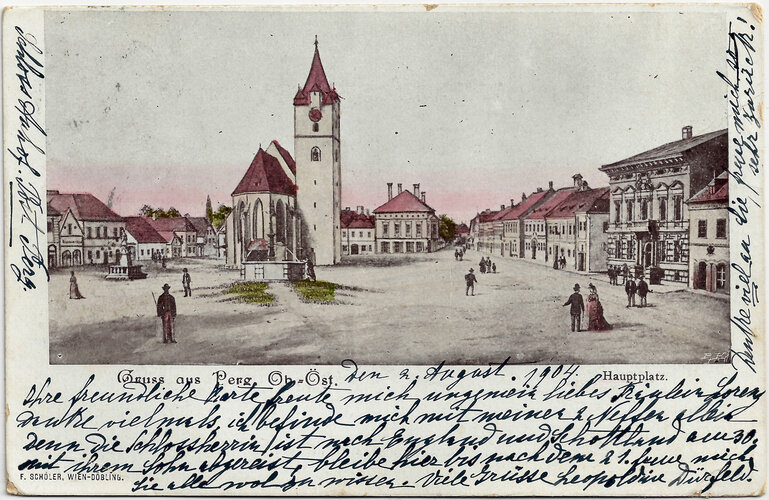 Gruss aus Perg, Ob.-Öst.
Hauptplatz.
den 2. August. 1904.
Ihre freundliche Karte freute mich ungemein liebes Fräulein Loren
danke vielmals, ich befinde mich mit meiner 2 Neffen allein
denn die Schlossherrin ist nach England und Schottland am 30.
mit ihrem Sohn abgereist, bleibe hier bis nach dem 21. freue mich
Sie alle wohl zu wissen. Viele Grüsse Leopoldine
F. SCHÖLER, WIEN-DÖBLING.
Schloss Auhof. Post Perg.
viel an die
freue mich
sehr zurück!